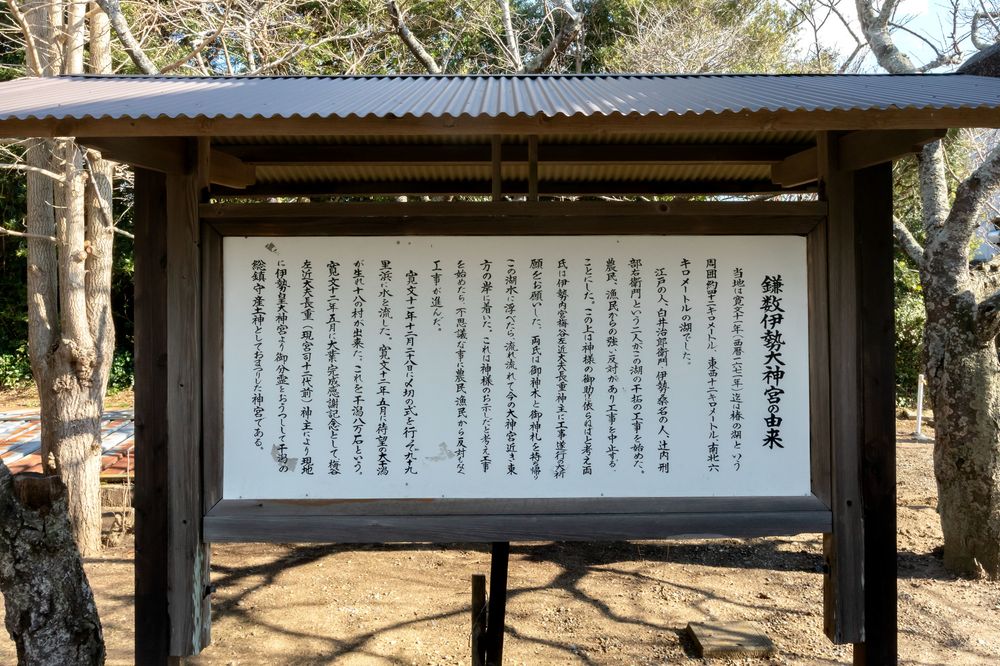 鎌数伊勢大神宮の由来
当地は寛文十一年（西暦一六七一年）迄は椿の湖という
周囲約四十二キロメートル 東西十二キロメートル、南北六
キロメートルの湖でした。
江戸の人、白井治郎衛門 伊勢桑名の人、辻内刑
部右衛門という二人がこの湖の干拓の工事を始めた。
農民、漁民からの強い反対があり工事を中止する
ことにした。この上は神様の御助け依らねばと考え両
氏は伊勢内宮梅谷左近大夫長重神主に工事遂行の大祈
願をお願いした。両氏は御神木と御神札を持ち帰り
この湖水に浮べたら、流れ流れて今の大神宮近き東
方の岸に着いた。これは神様のお示しだと考え工事
を始めたら、不思議な事に農民、漁民からの反対もなく
工事が進んだ。
寛文十一年十二月二十八日に〆切の式を行って九十九
里浜に水を流した。寛文十二年五月に待望の大干潟
が生れ十八の村が出来た。これを干潟八万石という。
寛文十二年五月に大業の完成感謝記念として梅谷
左近大夫長重（現宮司の十二代前）神主により現地
に伊勢皇大神宮より御分霊をおうつしして干潟の
総鎮守産土神としておまつりした神宮である。